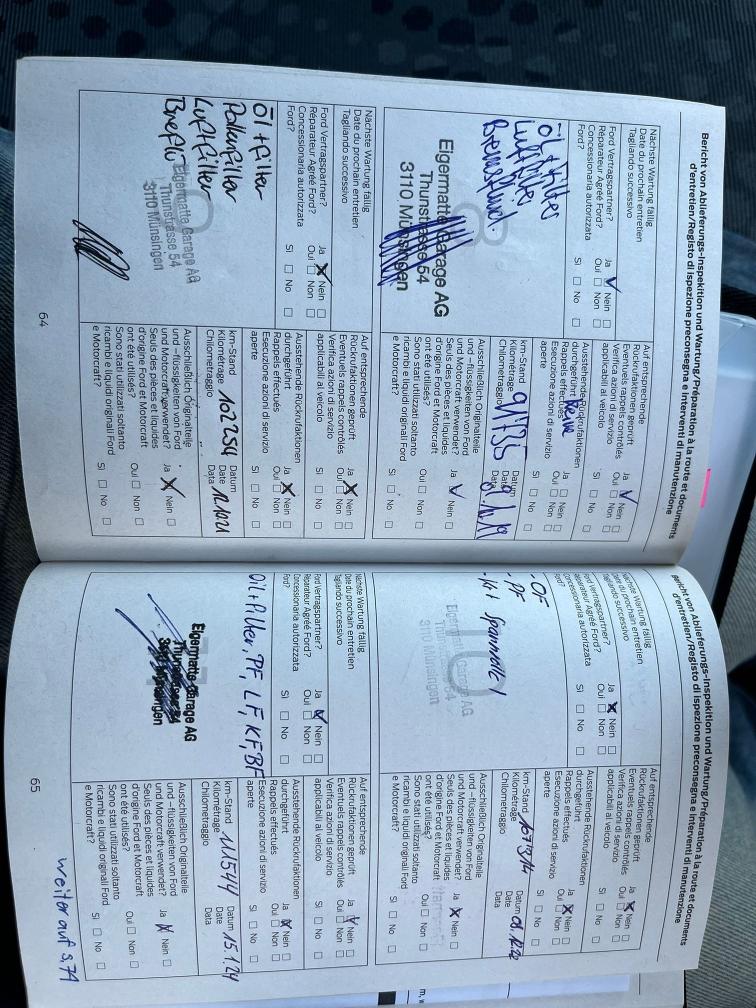 Bericht von Ablieferungs-Inspektion und Wartung/Préparation à la route et documents
d'entretien/Registo di ispezione preconsegna e interventi di manutenzione
Nächste Wartung fällig
Date du prochain entretien
Tagliando successivo
Ford Vertragspartner?
Réparateur Agréé Ford?
Concessionaria autorizzata
Ford?
Ja Nein
Oui Non
Sì No
Öl + Filter
Luftfilter
Bremsflüss.
Eigermatte Garage AG
Thunstrasse 54
3110 Münsingen
Auf entsprechende
Rückrufaktionen geprüft
Eventuels rappels contrôlés
Verifica azioni di servizio
applicabili al veicolo
Ja Nein
Oui Non
Sì No
Ausstehende Rückrufaktionen
durchgeführt Keine
Rappels effectués
Esecuzione azioni di servizio
aperte
Ja Nein
Oui Non
Sì No
km-Stand
Kilométrage
Chilometraggio
Datum
Date
Data
Ausschließlich Originalteile
und -flüssigkeiten von Ford
und Motorcraft verwendet?
Seuls des pièces et liquides
d'origine Ford et Motorcraft
ont été utilisés?
Sono stati utilizzati soltanto
ricambi e liquidi originali Ford
e Motorcraft?
Ja Nein
Oui Non
Sì No
Nächste Wartung fällig
Date du prochain entretien
Tagliando successivo
Ford Vertragspartner?
Réparateur Agréé Ford?
Concessionaria autorizzata
Ford?
Ja Nein
Oui Non
Sì No
Öl + Filter
Pollenfilter
Luftfilter
Eigermatte Garage AG
Thunstrasse 54
3110 Münsingen
Auf entsprechende
Rückrufaktionen geprüft
Eventuels rappels contrôlés
Verifica azioni di servizio
applicabili al veicolo
Ja Nein
Oui Non
Sì No
Ausstehende Rückrufaktionen
durchgeführt
Rappels effectués
Esecuzione azioni di servizio
aperte
Ja Nein
Oui Non
Sì No
km-Stand
Kilométrage 102254
Chilometraggio
Datum
Date
Data
Ausschließlich Originalteile
und -flüssigkeiten von Ford
und Motorcraft verwendet?
Seuls des pièces et liquides
d'origine Ford et Motorcraft
ont été utilisés?
Sono stati utilizzati soltanto
ricambi e liquidi originali Ford
e Motorcraft?
Ja Nein
Oui Non
Sì No
64
Bericht von Ablieferungs-Inspektion und Wartung/Préparation à la route et documents
d'entretien/Registo di ispezione preconsegna e interventi di manutenzione
Nächste Wartung fällig
Date du prochain entretien
Tagliando successivo
Ford Vertragspartner?
Réparateur Agréé Ford?
Concessionaria autorizzata
Ford?
Ja Nein
Oui Non
Sì No
- OF
- PF
Eigermatte Garage AG
Thunstrasse 54
3110 Münsingen
Auf entsprechende
Rückrufaktionen geprüft
Eventuels rappels contrôlés
Verifica azioni di servizio
applicabili al veicolo
Ja Nein
Oui Non
Sì No
Ausstehende Rückrufaktionen
durchgeführt
Rappels effectués
Esecuzione azioni di servizio
aperte
Ja Nein
Oui Non
Sì No
km-Stand
Kilométrage
Chilometraggio
Datum
Date
Data
Ausschließlich Originalteile
und -flüssigkeiten von Ford
und Motorcraft verwendet?
Seuls des pièces et liquides
d'origine Ford et Motorcraft
ont été utilisés?
Sono stati utilizzati soltanto
ricambi e liquidi originali Ford
e Motorcraft?
Ja Nein
Oui Non
Sì No
Nächste Wartung fällig
Date du prochain entretien
Tagliando successivo
Ford Vertragspartner?
Réparateur Agréé Ford?
Concessionaria autorizzata
Ford?
Ja Nein
Oui Non
Sì No
Öil + Filter, PF, LF, KF, BF
Eigermatte Garage AG
Thunstrasse 54
3110 Münsingen
Auf entsprechende
Rückrufaktionen geprüft
Eventuels rappels contrôlés
Verifica azioni di servizio
applicabili al veicolo
Ja Nein
Oui Non
Sì No
Ausstehende Rückrufaktionen
durchgeführt
Rappels effectués
Esecuzione azioni di servizio
aperte
Ja Nein
Oui Non
Sì No
km-Stand
Kilométrage 111544
Chilometraggio
Datum 15.1.24
Date
Data
Ausschließlich Originalteile
und -flüssigkeiten von Ford
und Motorcraft verwendet?
Seuls des pièces et liquides
d'origine Ford et Motorcraft
ont été utilisés?
Sono stati utilizzati soltanto
ricambi e liquidi originali Ford
e Motorcraft?
Ja Nein
Oui Non
Sì No
65
weiter auf S. 74